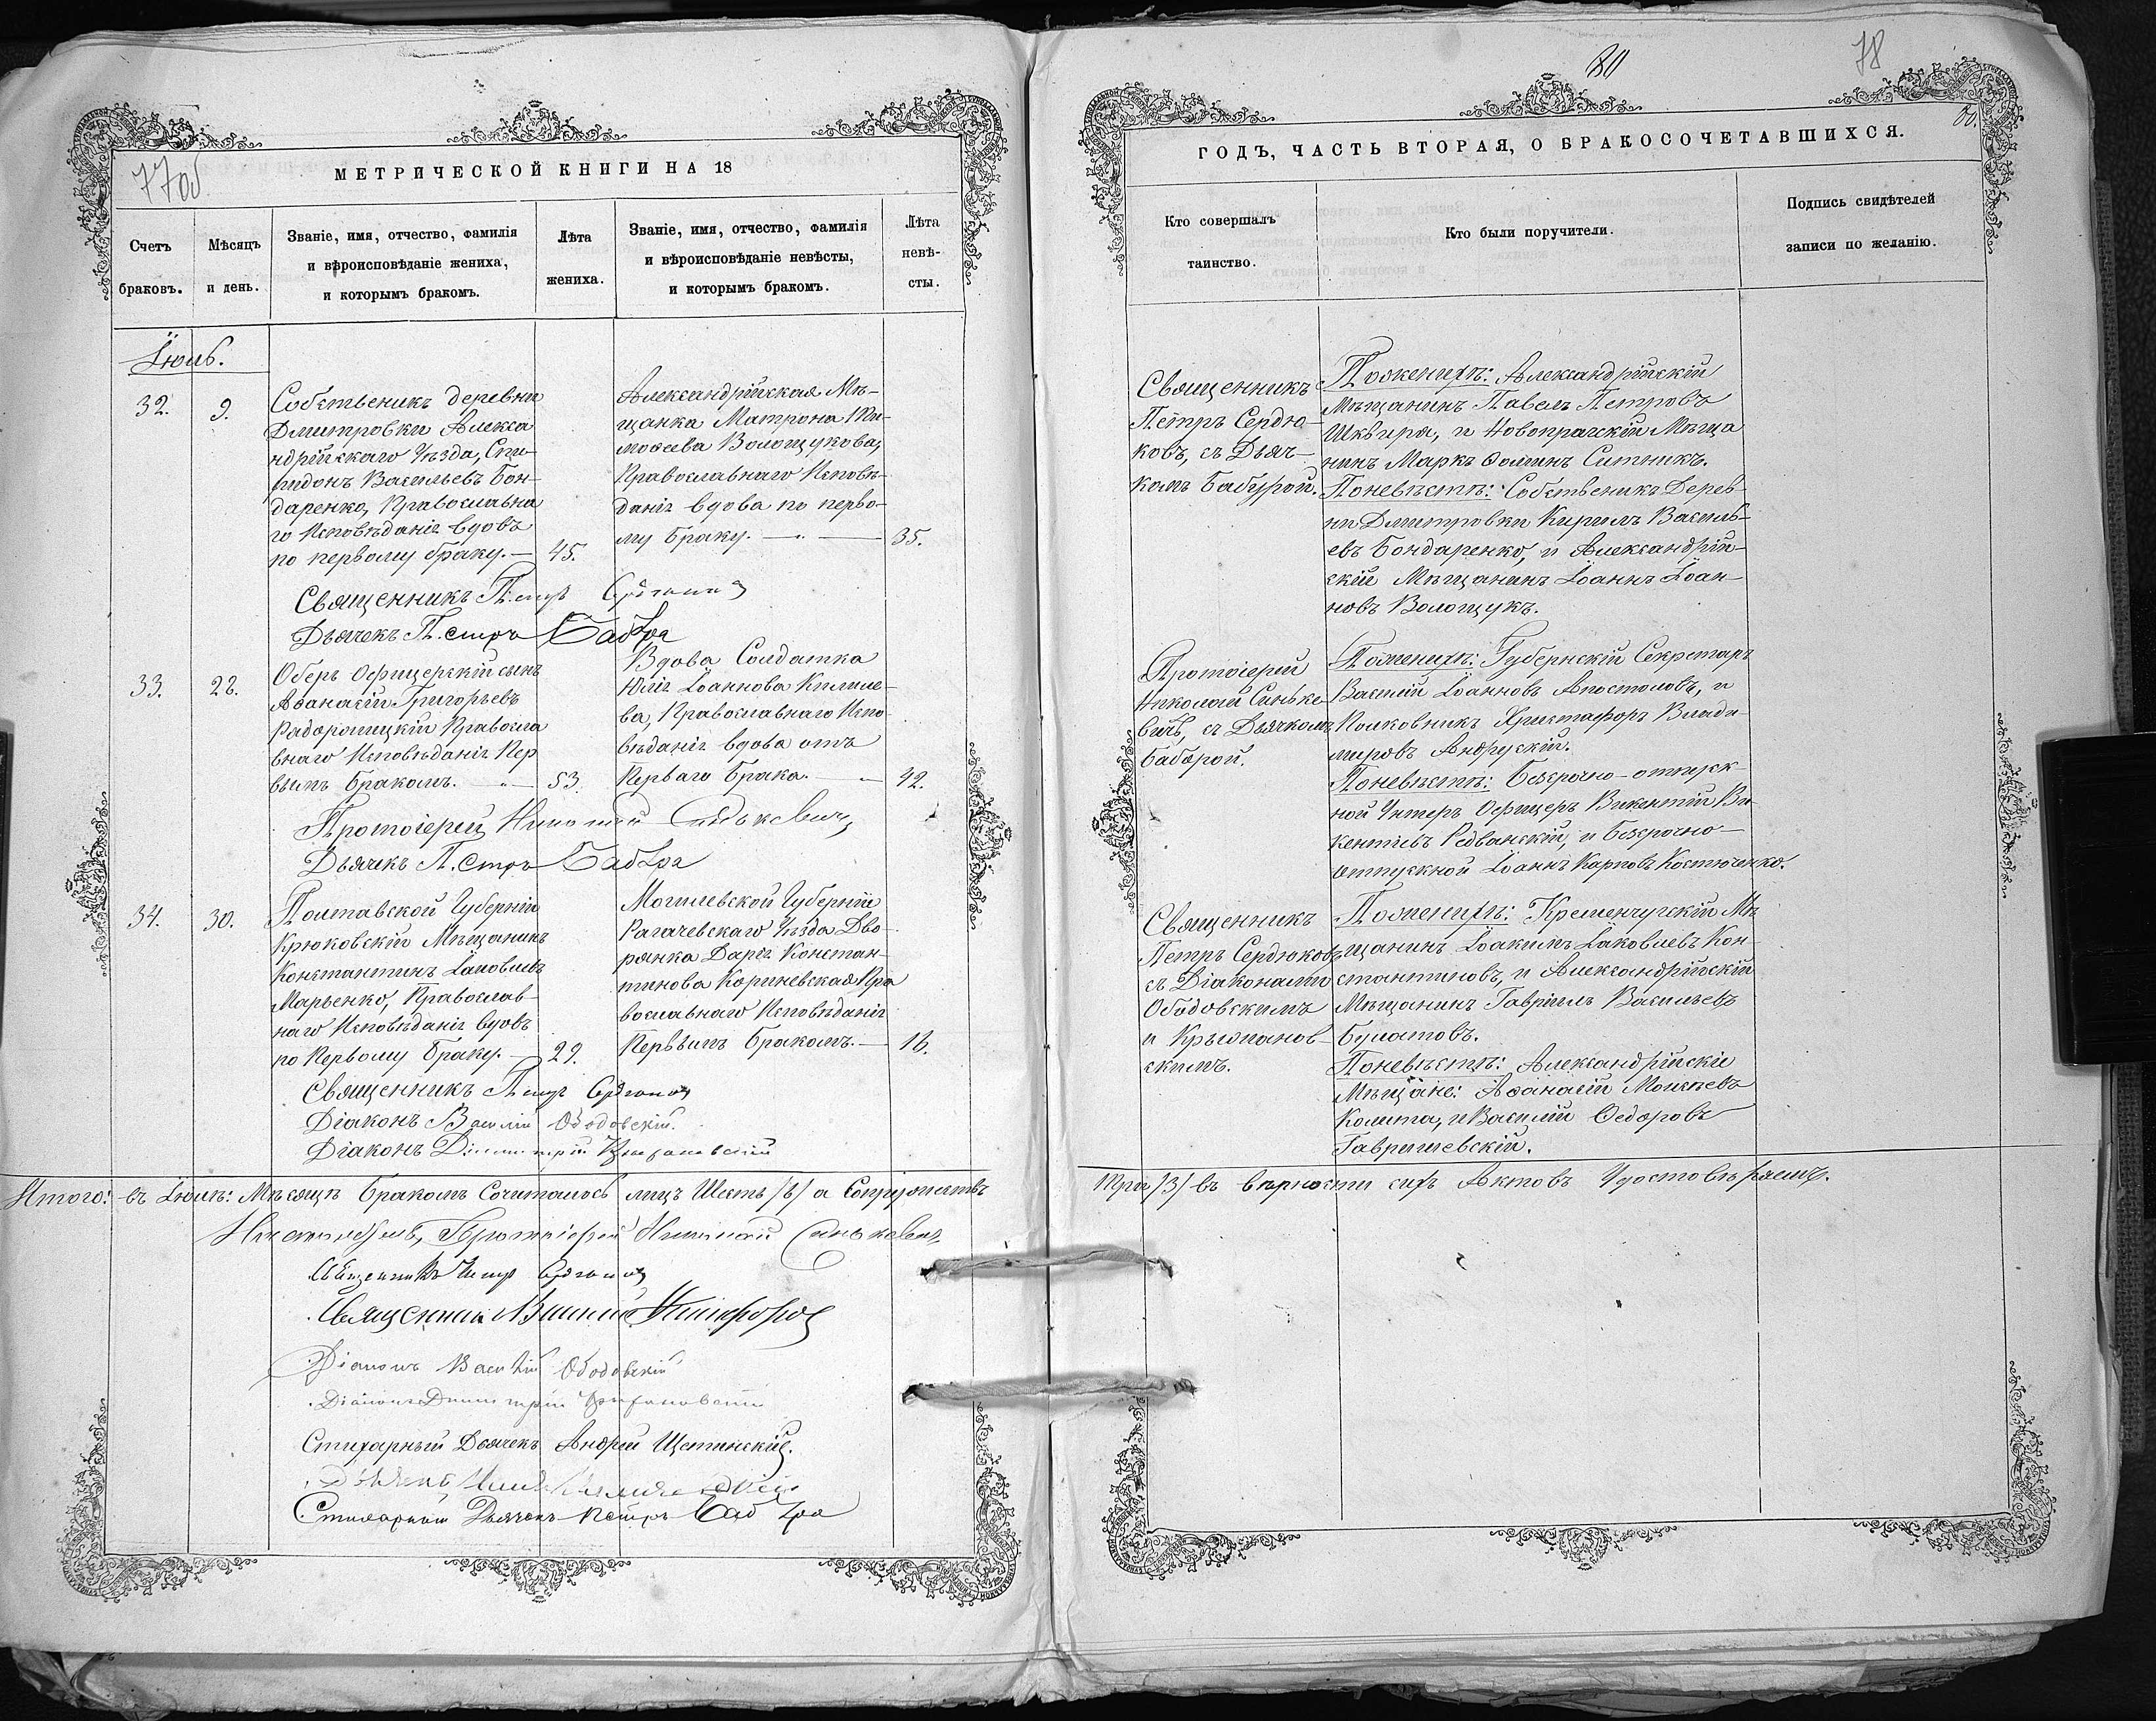 77об
МЕТРИЧЕСКОЙ КНИГИ НА 18
Счетъ
браковъ.
Мѣсяцъ
и день.
Званіе, имя, отчество, фамилія
и вѣроисповѣданіе жениха,
и которымъ бракомъ.
Лѣта
жениха.
Званіе, имя, отчество, фамилія
и вѣроисповѣданіе невѣсты,
и которымъ бракомъ.
Лѣта
невѣ-
сты.
Іюль.
32.
9.
Собственикъ деревни
Дмитровки Алекса
ндрійскаго Уѣзда, Спи-
ридонъ Васильевъ Бон-
даренко, Православна
го Исповѣданія вдовъ
по первому браку.
45.
Александрійская Мѣ-
щанка Матрона Ти-
моѳеева Волощукова,
Православнаго Исповѣ-
данія вдова по перво-
му браку.
35.
Священникъ Петръ Сердюковъ
Дьячекъ Петръ Бабура
33.
22.
Оберъ Офицерскій сынъ
Аѳанасій Григорьевъ
Радоролицкій Правосла
внаго Исповѣданія Пер
вымъ Бракомъ.
53.
Вдова Солдатка
Юлія Іоаннова
Православнаго Испо-
вѣданія вдова отъ
Перваго Брака.
42.
Протоіерей Николай Синькевичъ
Дьячекъ Петръ Бабура
34.
30.
Полтавской Губерніи
Крюковскій Мѣщанинъ
Константинъ Іаковлевъ
Марьенко, Православ-
наго Исповѣданія вдовъ
по Первому Браку.
29.
Могилевской Губерніи
Рагачевскаго Уѣзда Дво-
рянка Дарія Констан-
тинова Кориневская Пра
вославнаго Исповѣданія
Первымъ Бракомъ.
16.
Священникъ Петръ Сердюковъ
Діаконъ Василій Ободовскій.
Діаконъ Димитрій
Итого: въ Іюлѣ: Мѣсяцѣ Бракомъ Сочиталось лицъ Шесть /6/ а Супружествъ
Настоятель, Протоіерей Николай Синькевичъ
Священникъ Петръ Сердюковъ
Священникъ Никифоровъ
Діаконъ Василій Ободовскій
Діаконъ Димитрій
Стихарный Дьячекъ Андрей Щетинскій.
Стихарный Дьячекъ Петръ Бабура
80
78
80.
ГОДЪ, ЧАСТЬ ВТОРАЯ, О БРАКОСОЧЕТАВШИХСЯ.
Кто совершалъ
таинство.
Кто были поручители.
Подпись свидѣтелей
записи по желанію.
Священникъ
Петръ Сердю-
ковъ, съ Дьяч-
комъ Бабурой.
Поженихѣ: Александрійскій
Мѣщанинъ Павелъ Петровъ
Шквиря, и Новопражскій Мѣща
нинъ Маркъ Ѳоминъ Ситникъ.
Поневѣстѣ: Собственикъ Дерев-
ни Дмитровки Кирилъ Василь-
евъ Бондаренко, и Александрій-
скій Мѣщанинъ Іоаннъ Іоан-
новъ Волощукъ.
Протоіерей
Николай Синьке-
вичъ, съ Дьячкомъ
Бабурой.
Поженихѣ: Губернскій Секретарь
Василій Іоанновъ Апостоловъ, и
Полковникъ Христафоръ Влади-
мировъ Андрускій.
Поневѣстѣ: Безсрочно-отпуск-
ной Унтеръ Офицеръ Викентій Ви-
кентіевъ Редванскій, и Безсрочно-
отпускной Іоаннъ Карповъ Костюченко.
Священникъ
Петръ Сердюковъ,
съ Діаконами
Ободовскимъ
и
скимъ.
Поженихѣ: Кременчугскій Мѣ
щанинъ Іоакимъ Іаковлевъ Кон-
стантиновъ, и Александрійскій
Мѣщанинъ Гавріилъ Васильевъ
Булатовъ.
Поневѣстѣ: Александрійскіе
Мѣщане: Аѳанасій Моисѣевъ
Колита, и Василій Ѳедоровъ
Гавришевскій.
три /3/ въ вѣрности сихъ Актовъ Удостовѣряемъ.